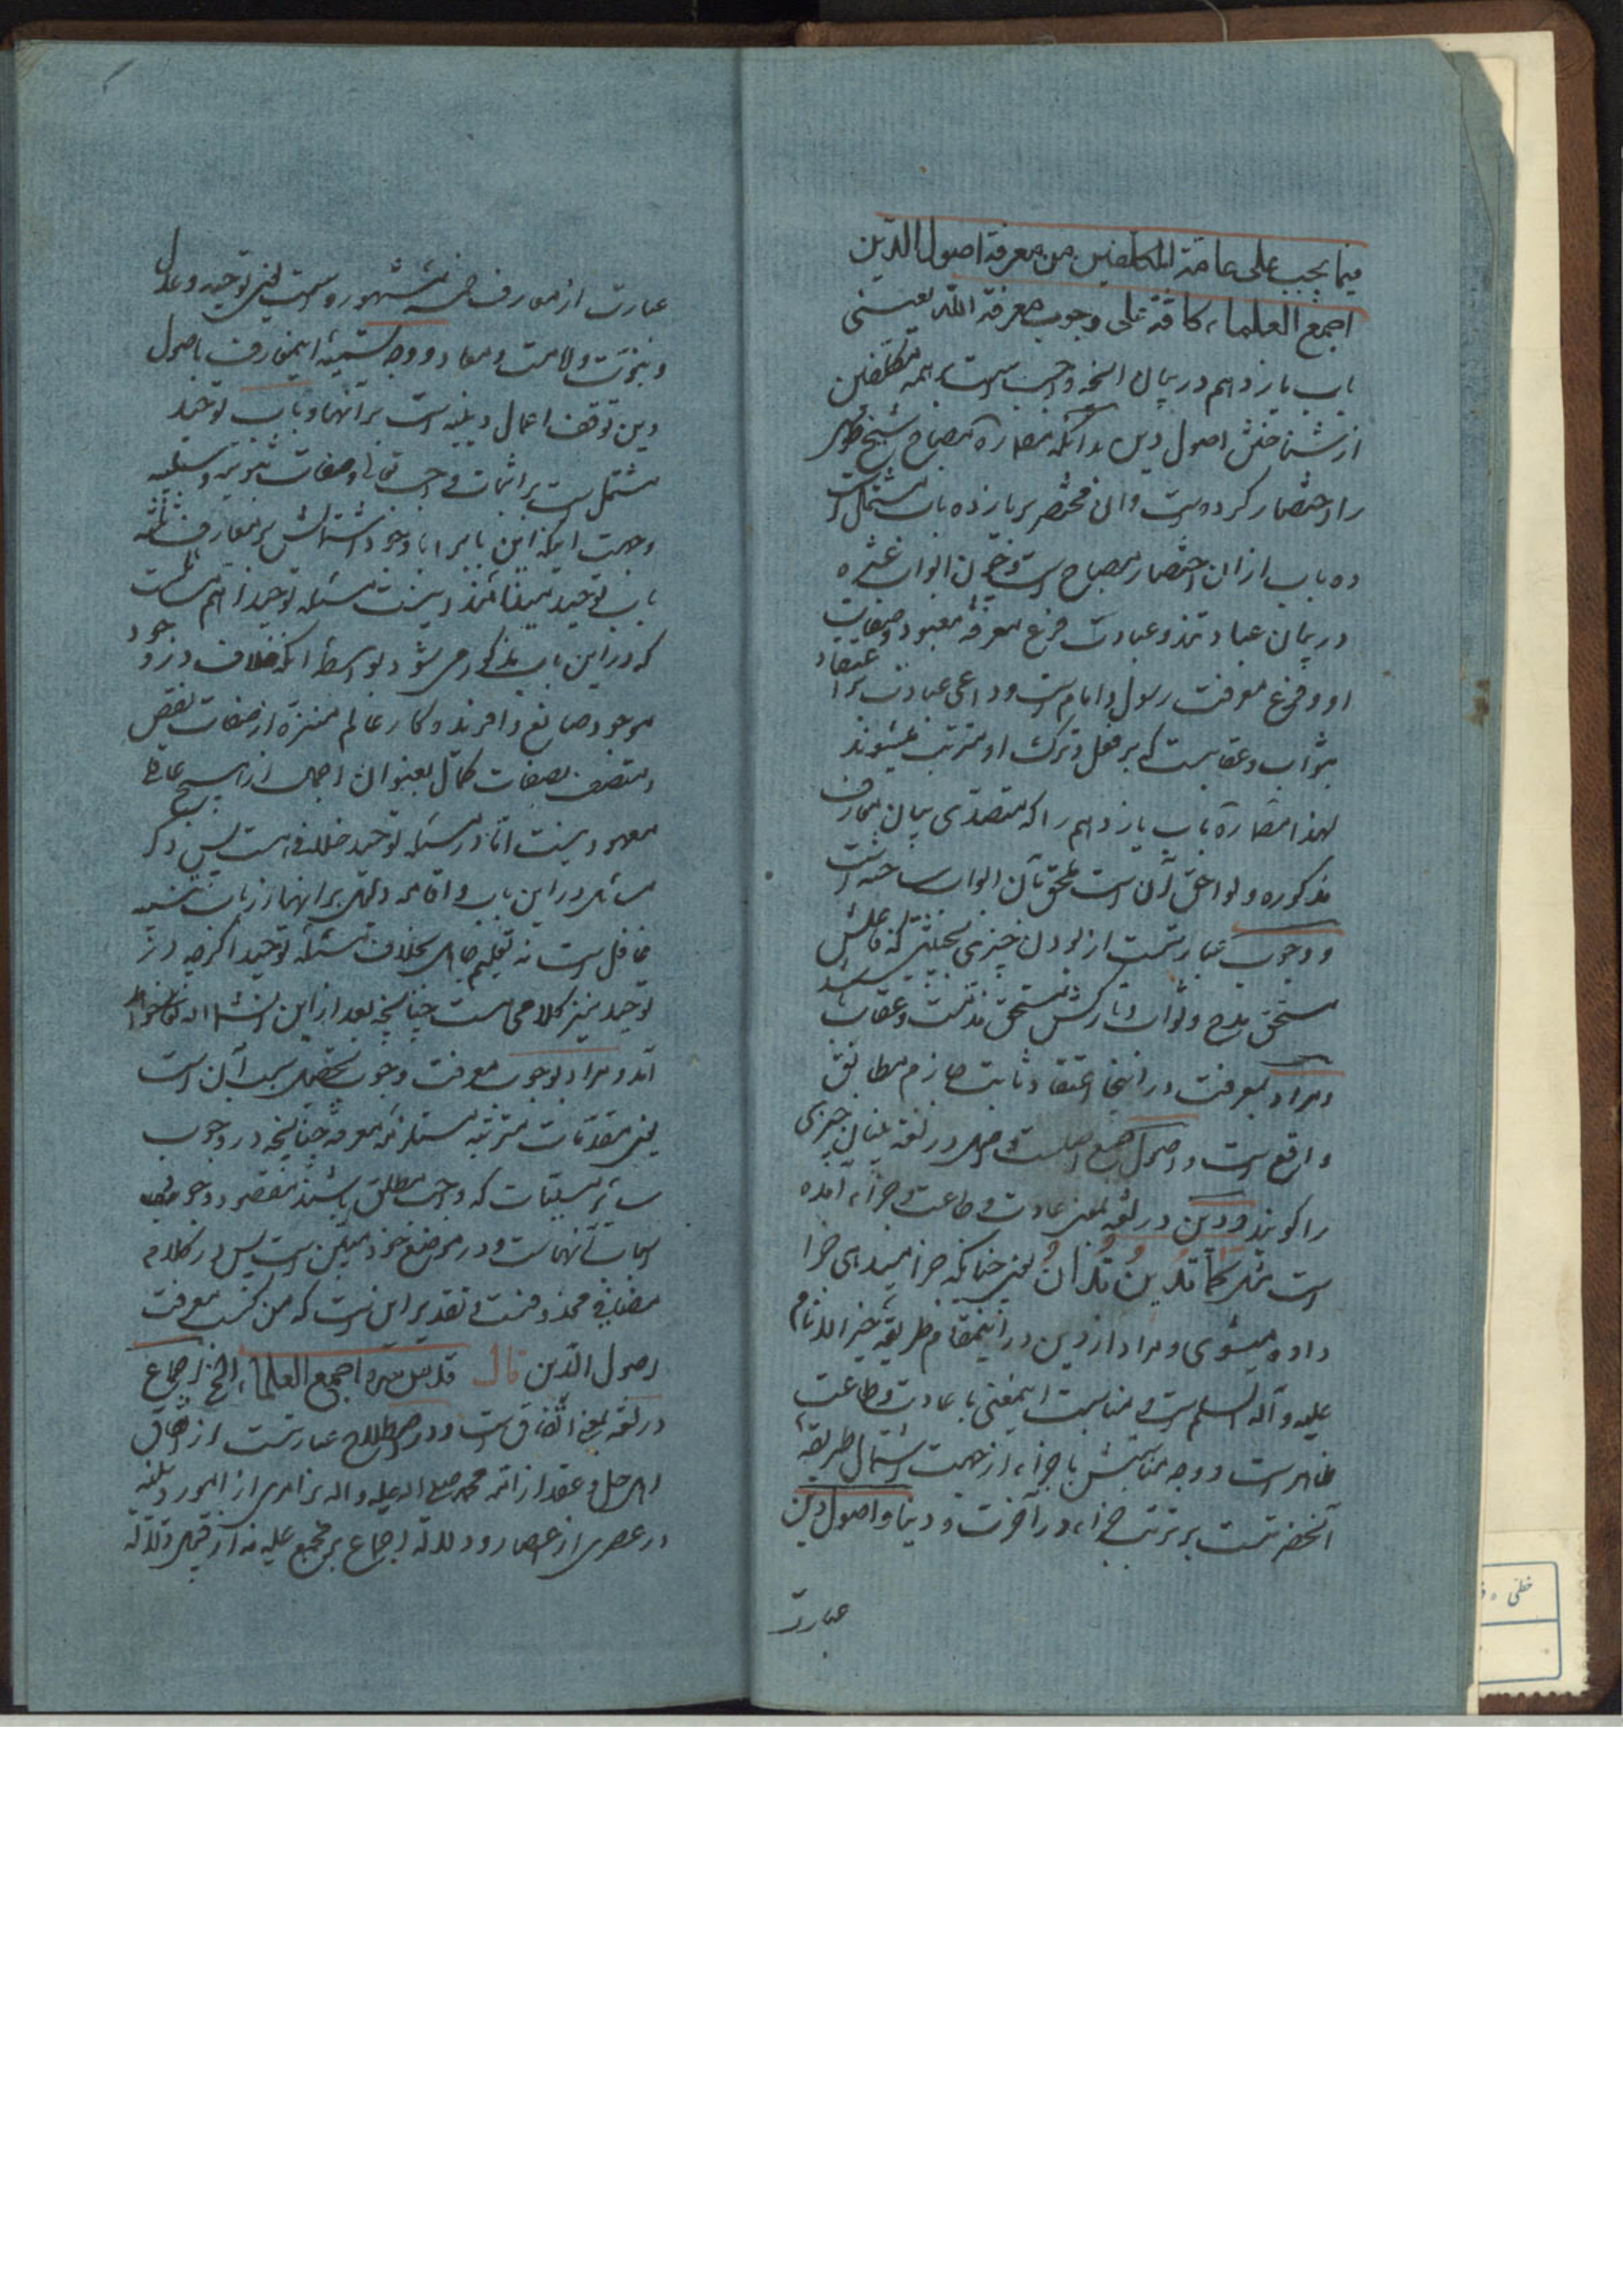 فیما یجب علی عامة المکلفین من معرفة اصول الدین
اجمع العلماء کافة علی وجوب معرفة الله یعنی
باب یازدهم در بیان آنچه واجب است بر همه مکلفین
از شناختن اصول دین بدانکه مصادره مصباح شیخ طوسی
را اختصار کرده است و آن مختصر بر یازده باب مشتمل است
ده باب از آن اختصار مصباح است و چون ابواب عشره
در بیان عبادتند و عبادت فرع معرفة معبود و صفات
او و فرع معرفت رسول و امام است و داعی عبادت اعتقاد
بثواب و عقابست که بر فعل و ترک او مترتب میشوند
لهذا باب یازدهم را که متصدی بیان معارف
مذکوره و لواحق آن است ملحق بآن ابواب ساخته است
و وجوب عبارتست از بودن چیزی بحیثیتی که فاعلش
مستحق مدح و ثواب و تارکش مستحق مذمت و عقاب باشد
و مراد بمعرفت در اینجا اعتقاد ثابت جازم مطابق
واقع است و اصول جمع اصلست و اصل در لغة بنیان چیزی
را کویند و دین در لغة بمعنی عادت و طاعت و جزاء آمده
است مثل کما تدین تدان یعنی چنانکه جزا میدهی جزا
داده میشوی و مراد از دین در اینمقام طریقه خیر الانام
علیه و آله السلم است و مناسبت اینمعنی با عادت و طاعت
ظاهر است و وجه مناسبتش با جزاء از جهت اشتمال طریقه
آنحضرتست بر ترتب جزاء در آخرت و دنیا و اصول دین
عبارت
عبارت از معارف خمسه مشهوره است یعنی توحید و عدل
و نبوت و امامت و معاد و وجه تسمیه اینمعارف باصول
دین توقف اعمال دینیه است بر آنها و باب توحید
مشتمل است بر اثبات واجب تعالی و صفات ثبوتیه و سلبیه
و جهت اینکه این باب را با وجود اشتمالش بر معارف ثلثه
باب توحید مینامند اینست مسئله توحید اهم مسائلست
که در این باب مذکور می شود بواسطه آنکه خلاف در وجود
موجود صانع و آفریدکار عالم منزه از صفات نقص
و متصف بصفات کمال بعنوان اجمال از هیچ عاقل
معهود نیست اما در مسئله توحید خلاف هست پس ذکر
سایر در این باب و اقامه دلیل بر آنها از باب تنبیه
غافل است نه تعلیم جاهل بخلاف مسئله توحید اکرچه در
توحید نیز کلامی هست چنانچه بعد از این انشاء الله خواهد
آمد و مراد بوجوب معرفت وجوب تحصیل سبب آن است
یعنی مقدمات مترتبه مستلزمه معرفة چنانچه در وجوب
سایر مسببات که واجب مطلق باشند مقصود وجوب
اسباب آنهاست و در موضع خود مبین است پس در کلام
مضاف محذوفست و تقدیر این است که من کسب معرفت
اصول الدین قال قدس سره اجمع العلماء الخ اجماع
در لغة بمعنی اتفاق است و در اصطلاح عبارتست از اتفاق
اهل حل و عقد از امة محمد صلی الله علیه و آله بر امری از امور دینیه
در عصری از اعصار و دلالة اجماع بر مجمع علیه نه از قبیل دلالة
خطی